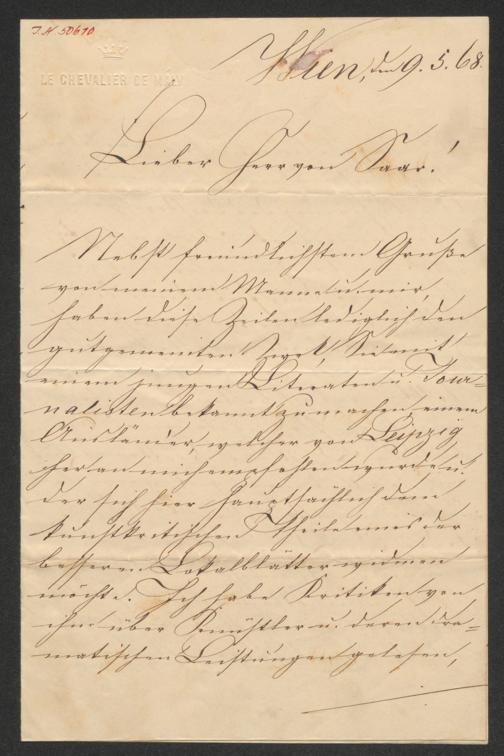 J.N 50610
LE CHEVALIER DE
Wien, den 9. 5. 68.
Lieber Herr von Saar!
Nebst freundlichstem Gruße
von meinem Manne u. mir,
haben diese Zeilen lediglich den
gutgemeinten Zwek, Sie mit
einem jungen Literaten u. Jour=
nalisten bekannt zu machen, einem
Ausländer, welcher von Leipzig
her an mich empfohlen wurde u.
der sich hier hauptsächlich dem
kunstkritischen Theile eines der
besseren Lokalblätter widmen
möchte. Ich habe Kritiken von
ihm über Künstler u. deren dra=
matischen Leistungen gelesen,